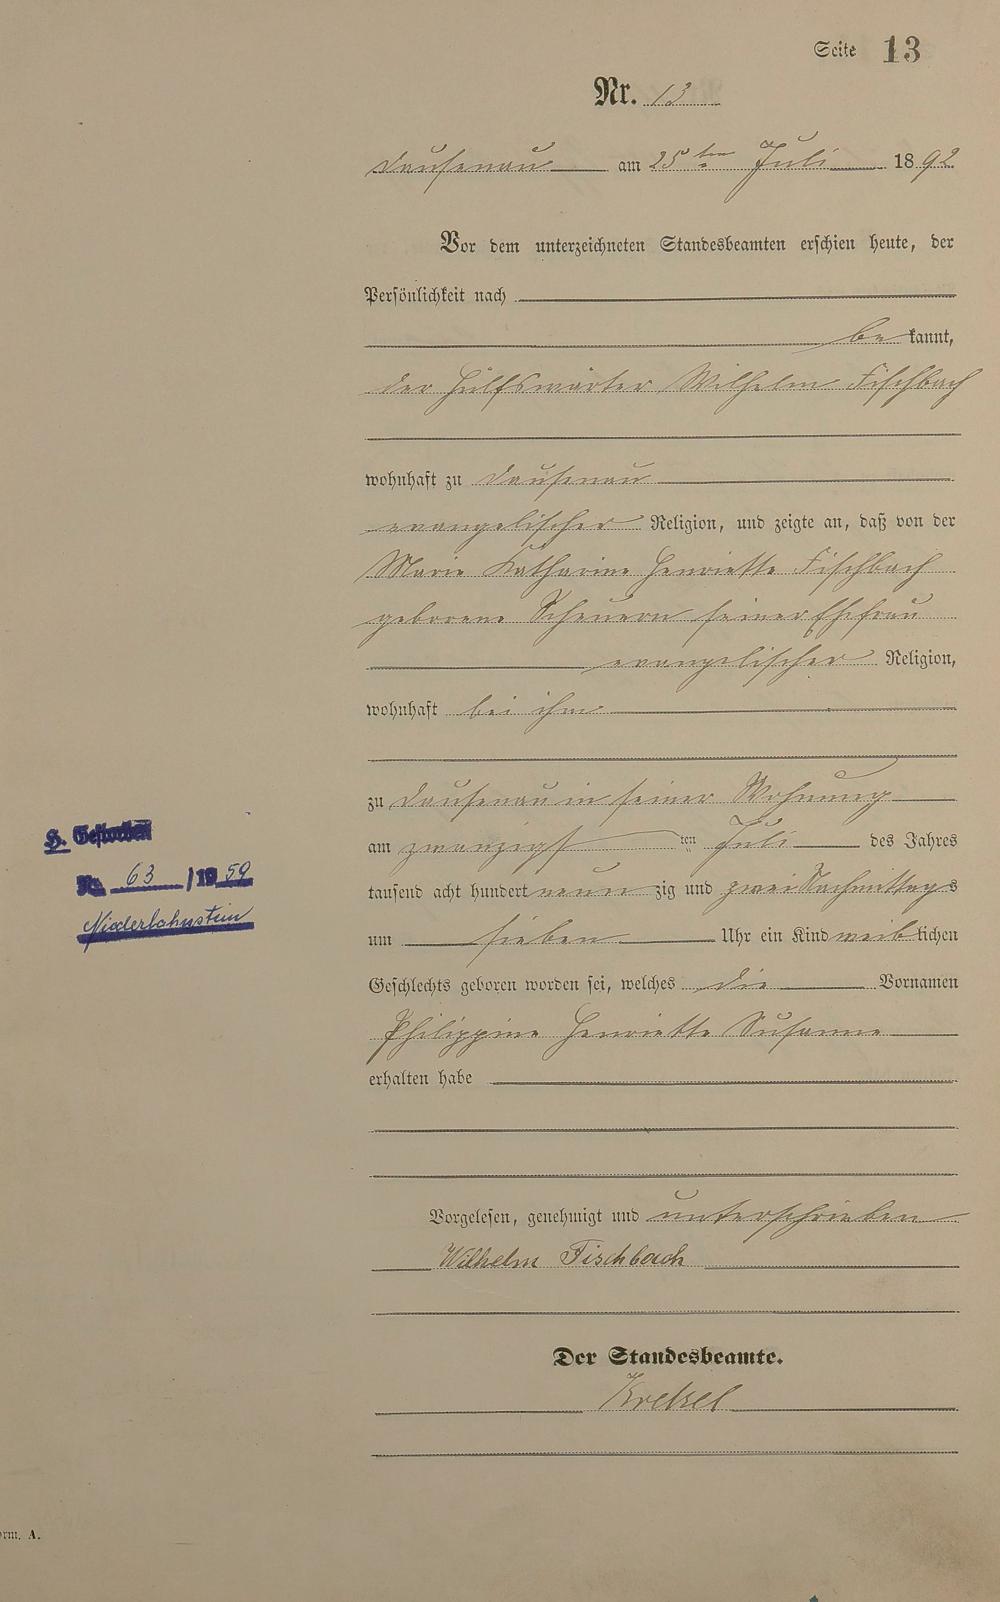 Seite 13
Nr. 13
Dausenau am 25ten Juli 1892
Vor dem unterzeichneten Standesbeamten erschien heute, der
Persönlichkeit nach
be kannt,
der Hülfswärter Wilhelm Fischbach
wohnhaft zu Dausenau
evangelischer Religion, und zeigte an, daß von der
Marie Katharine Henriette Fischbach
geborene Scheuern seiner Ehefrau
evangelischer Religion,
wohnhaft bei ihm
zu Dausenau in seiner Wohnung
am zwanzigsten Juli des Jahres
tausend acht hundert neun zig und zwei Nachmittags
um sieben Uhr ein Kind weiblichen
Geschlechts geboren worden sei, welches die Vornamen
Philippine Henriette Susanne
erhalten habe
Vorgelesen, genehmigt und unterschrieben
Wilhelm Fischbach
Der Standesbeamte.
H. Gestorben
Nr. 63 / 1959
Niederlahnstein
orm. A.